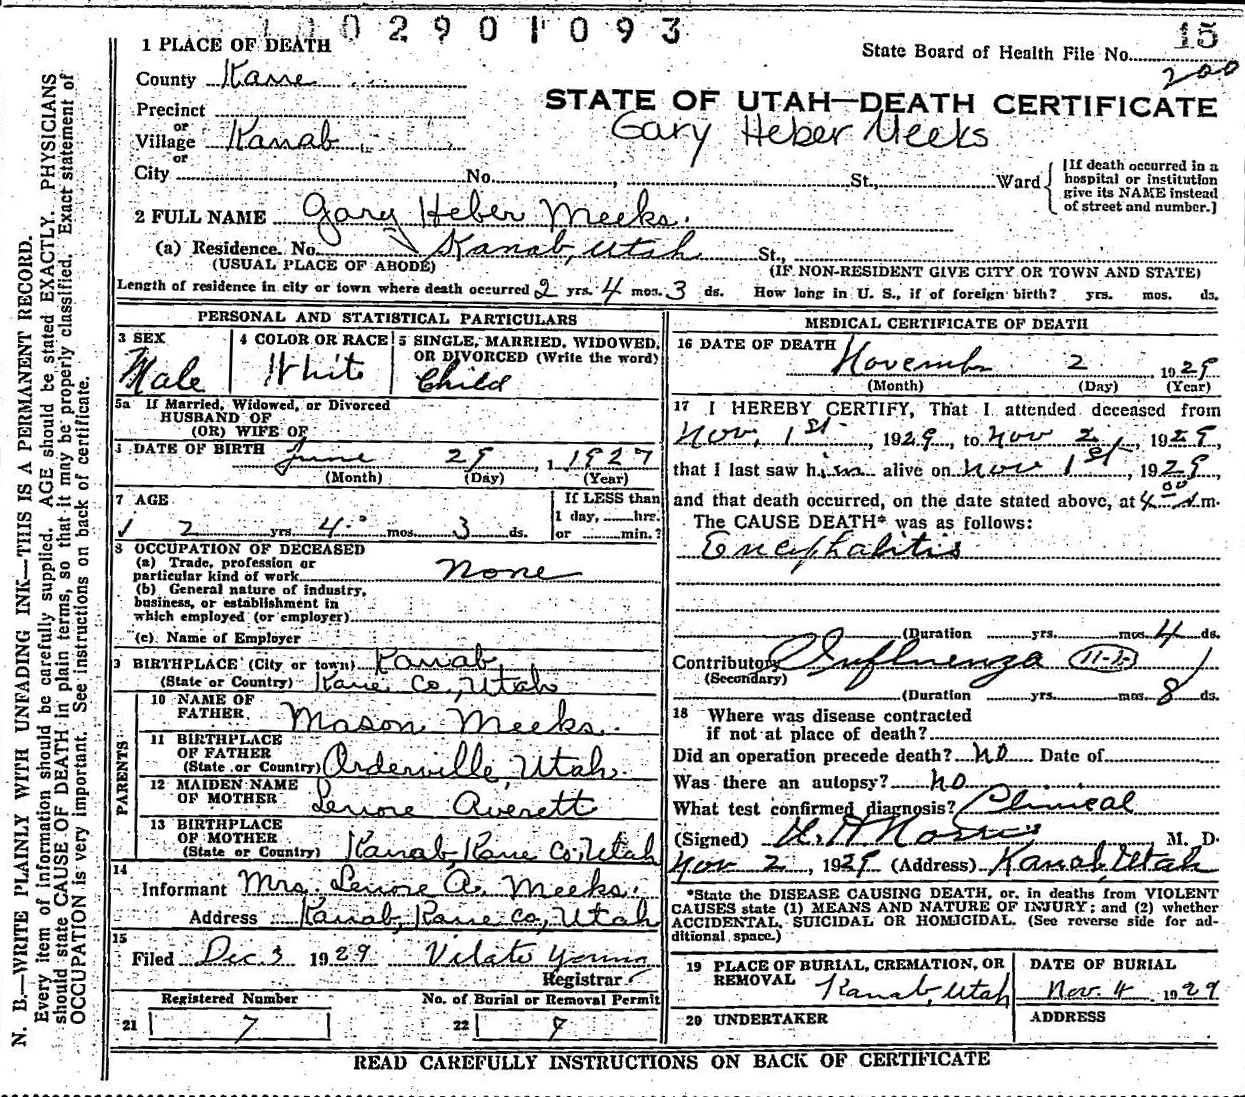 1002901093
15
1 PLACE OF DEATH
State Board of Health File No.
200
County Kane
STATE OF UTAH—DEATH CERTIFICATE
Precinct
or
Gary Heber Meeks
Village Kanab
or
City No. , St., Ward
[If death occurred in a
hospital or institution
give its NAME instead
of street and number.]
2 FULL NAME Gary Heber Meeks.
(a) Residence. No. Kanab, Utah St.,
(USUAL PLACE OF ABODE) (IF NON-RESIDENT GIVE CITY OR TOWN AND STATE)
Length of residence in city or town where death occurred 2 yrs. 4 mos. 3 ds. How long in U. S., if of foreign birth? yrs. mos. ds.
PERSONAL AND STATISTICAL PARTICULARS
3 SEX
Male
4 COLOR OR RACE
White
5 SINGLE, MARRIED, WIDOWED,
OR DIVORCED (Write the word)
Child
5a If Married, Widowed, or Divorced
HUSBAND OF
(OR) WIFE OF
DATE OF BIRTH June 29, 1927
(Month) (Day) (Year)
7 AGE
2 yrs. 4 mos. 3 ds.
If LESS than
1 day, hrs.
or min.?
8 OCCUPATION OF DECEASED
(a) Trade, profession or
particular kind of work none
(b) General nature of industry,
business, or establishment in
which employed (or employer)
(c) Name of Employer
9 BIRTHPLACE (City or town) Kanab
(State or Country) Kane Co, Utah
PARENTS
10 NAME OF
FATHER Mason Meeks.
11 BIRTHPLACE
OF FATHER
(State or Country) Orderville, Utah.
12 MAIDEN NAME
OF MOTHER Lenore Averett
13 BIRTHPLACE
OF MOTHER
(State or Country) Kanab, Kane Co, Utah
14
Informant Mrs. Lenore A. Meeks.
Address Kanab, Kane Co, Utah
15
Filed Dec 3 1929 Vilate Young
Registrar
Registered Number
21 7
No. of Burial or Removal Permit
22 9
MEDICAL CERTIFICATE OF DEATH
16 DATE OF DEATH November 2 1929
(Month) (Day) (Year)
17 I HEREBY CERTIFY, That I attended deceased from
Nov. 1st, 1929, to Nov 2, 1929,
that I last saw him alive on Nov 1st, 1929,
and that death occurred, on the date stated above, at 4 00 A m.
The CAUSE DEATH* was as follows:
Encephalitis
(Duration yrs. mos. 4 ds.
Contributory Influenza 11-b
(Secondary)
(Duration yrs. mos. 8 ds.
18 Where was disease contracted
if not at place of death?
Did an operation precede death? no Date of
Was there an autopsy? no
What test confirmed diagnosis? Clinical
(Signed) M. D.
Nov 2, 1929 (Address) Kanab, Utah
*State the DISEASE CAUSING DEATH, or, in deaths from VIOLENT
CAUSES state (1) MEANS AND NATURE OF INJURY; and (2) whether
ACCIDENTAL, SUICIDAL OR HOMICIDAL. (See reverse side for ad-
ditional space.)
19 PLACE OF BURIAL, CREMATION, OR
REMOVAL Kanab, Utah
DATE OF BURIAL
Nov. 4 1929
20 UNDERTAKER
ADDRESS
READ CAREFULLY INSTRUCTIONS ON BACK OF CERTIFICATE
N. B.—WRITE PLAINLY WITH UNFADING INK—THIS IS A PERMANENT RECORD.
Every item of information should be carefully supplied. AGE should be stated EXACTLY. PHYSICIANS
should state CAUSE OF DEATH in plain terms, so that it may be properly classified. Exact statement of
OCCUPATION is very important. See instructions on back of certificate.